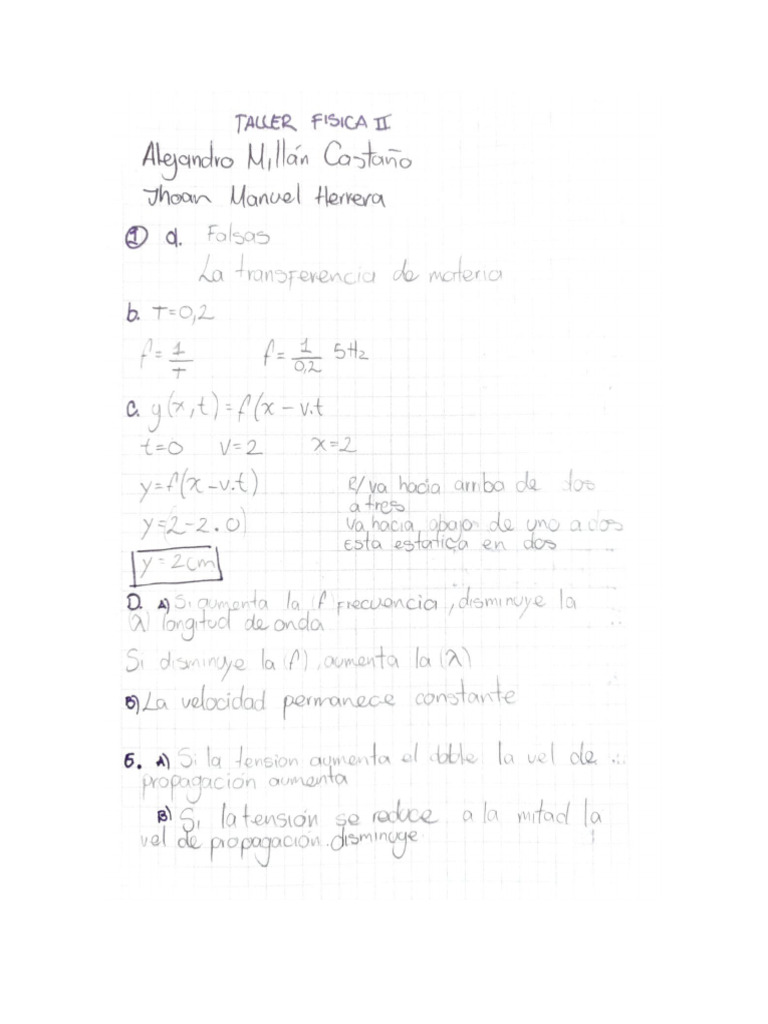 TALLER FISICA II
Alejandro Millán Castaño
Jhoan Manuel Herrera
① a. Falsas
La transferencia de materia
b. T=0,2
f= 1/T f= 1/0,2 5Hz
c. y(x,t)=f(x-v.t
t=0 v=2 x=2
y=f(x-v.t) R/va hacia arriba de dos
a tres
y=(2-2.0) va hacia abajo de uno a dos
Esta estatica en dos
y=2cm
D. A) Si aumenta la (f) frecuencia, disminuye la
(λ) longitud de onda
Si disminuye la (f), aumenta la (λ)
B) La velocidad permanece constante
5. A) Si la tension aumenta el doble la vel de
propagación aumenta
B) Si la tensión se reduce a la mitad la
vel de propagación. disminuye